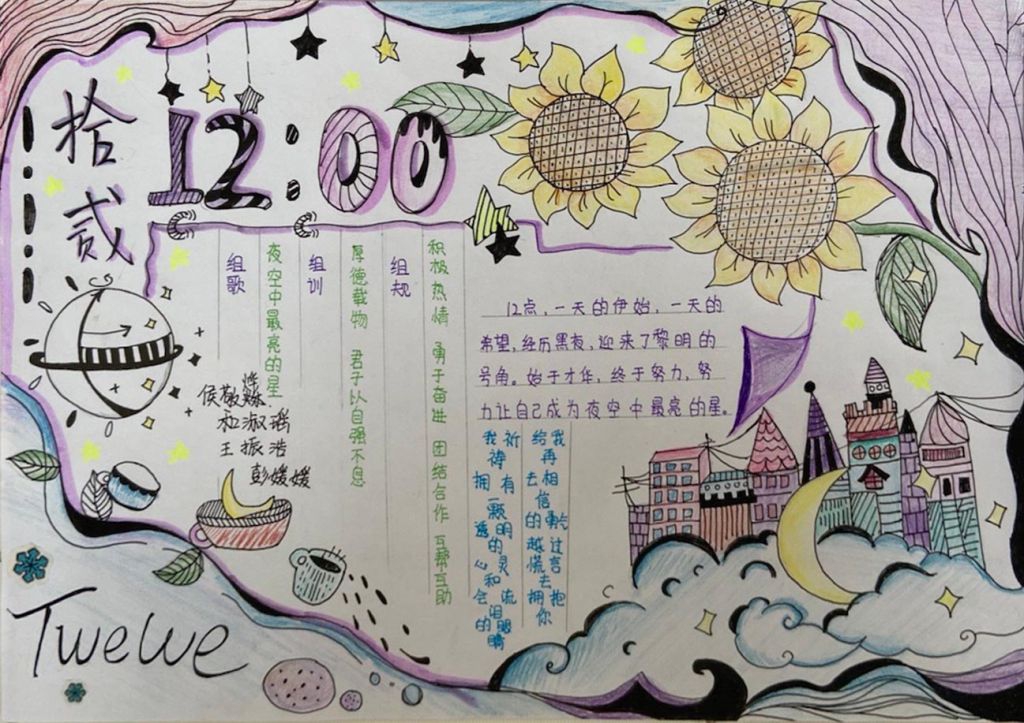 拾贰
12:00
组歌
夜空中最亮的星
组训
厚德载物 君子以自强不息
组规
积极热情 勇于奋进 团结合作 互帮互助
12点,一天的伊始,一天的
希望,经历黑夜,迎来了黎明的
号角。始于才华,终于努力,努
力让自己成为夜空中最亮的星。
我祈祷拥有一颗透明的灵
和会流泪的眼睛
给我再去相信的
越过谎言去拥抱你
和淑瑶
王振浩
彭媛媛
Twelve